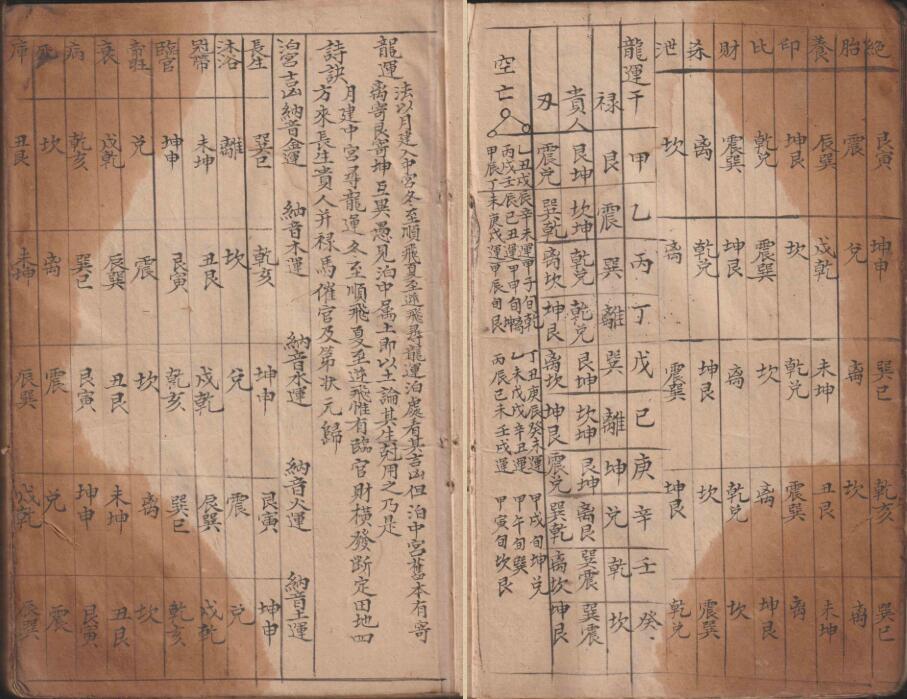 絕 艮寅 坤申 巽巳 乾亥 巽巳
胎 震 兌 离 坎 离
養 辰巽 戌乾 未坤 丑艮 未坤
印 坤艮 坎 乾兌 震巽 离
比 乾兌 震巽 坎 离 坤艮
財 震巽 坤艮 离 乾兌 坎
杀 离 乾兌 坤艮 坎 震巽
泄 坎 离 震巽 坤艮 乾兌
龍運干 甲 乙 丙 丁 戊 己 庚 辛 壬 癸
禄 艮 震 巽 離 巽 離 坤 兌 乾 坎
貴人 艮坤 坎坤 乾兌 乾兌 艮坤 坎坤 艮坤 离艮 巽震 巽震
刃 震兌 巽乾 离坎 坤艮 离坎 坤艮 震兌 巽乾 离坎 坤艮
空亡
乙丑戊辰辛未運甲子旬乾 丁丑庚辰癸未運 甲戌旬坤兌
丙戌壬辰己丑運甲申旬坤離 乙未戊戌辛丑運 甲午旬巽
甲辰丁未庚戌運甲辰旬艮 丙辰己未壬戌運 甲寅旬坎艮
龍運 法以月建入中宮冬至順飛夏至逆飛尋龍運泊處看其吉凶但泊中宮舊本有寄
离寄艮寄坤互異愚見泊中属土即以土論其生剋用之乃是
詩訣 月建中宮尋龍運冬至順飛夏至逆飛惟有臨官財橫發斷定田地四
方來長生貴人并禄馬催官及第状元歸
泊宮吉凶 納音金運 納音木運 納音水運 納音火運 納音土運
長生 巽巳 乾亥 坤申 艮寅 坤申
沐浴 離 坎 兌 震 兌
冠帶 未坤 丑艮 戌乾 辰巽 戌乾
臨官 坤申 艮寅 乾亥 巽巳 乾亥
帝旺 兌 震 坎 离 坎
衰 戌乾 辰巽 丑艮 未坤 丑艮
病 乾亥 巽巳 艮寅 坤申 艮寅
死 坎 离 震 兌 震
庫 丑艮 未坤 辰巽 戌乾 辰巽